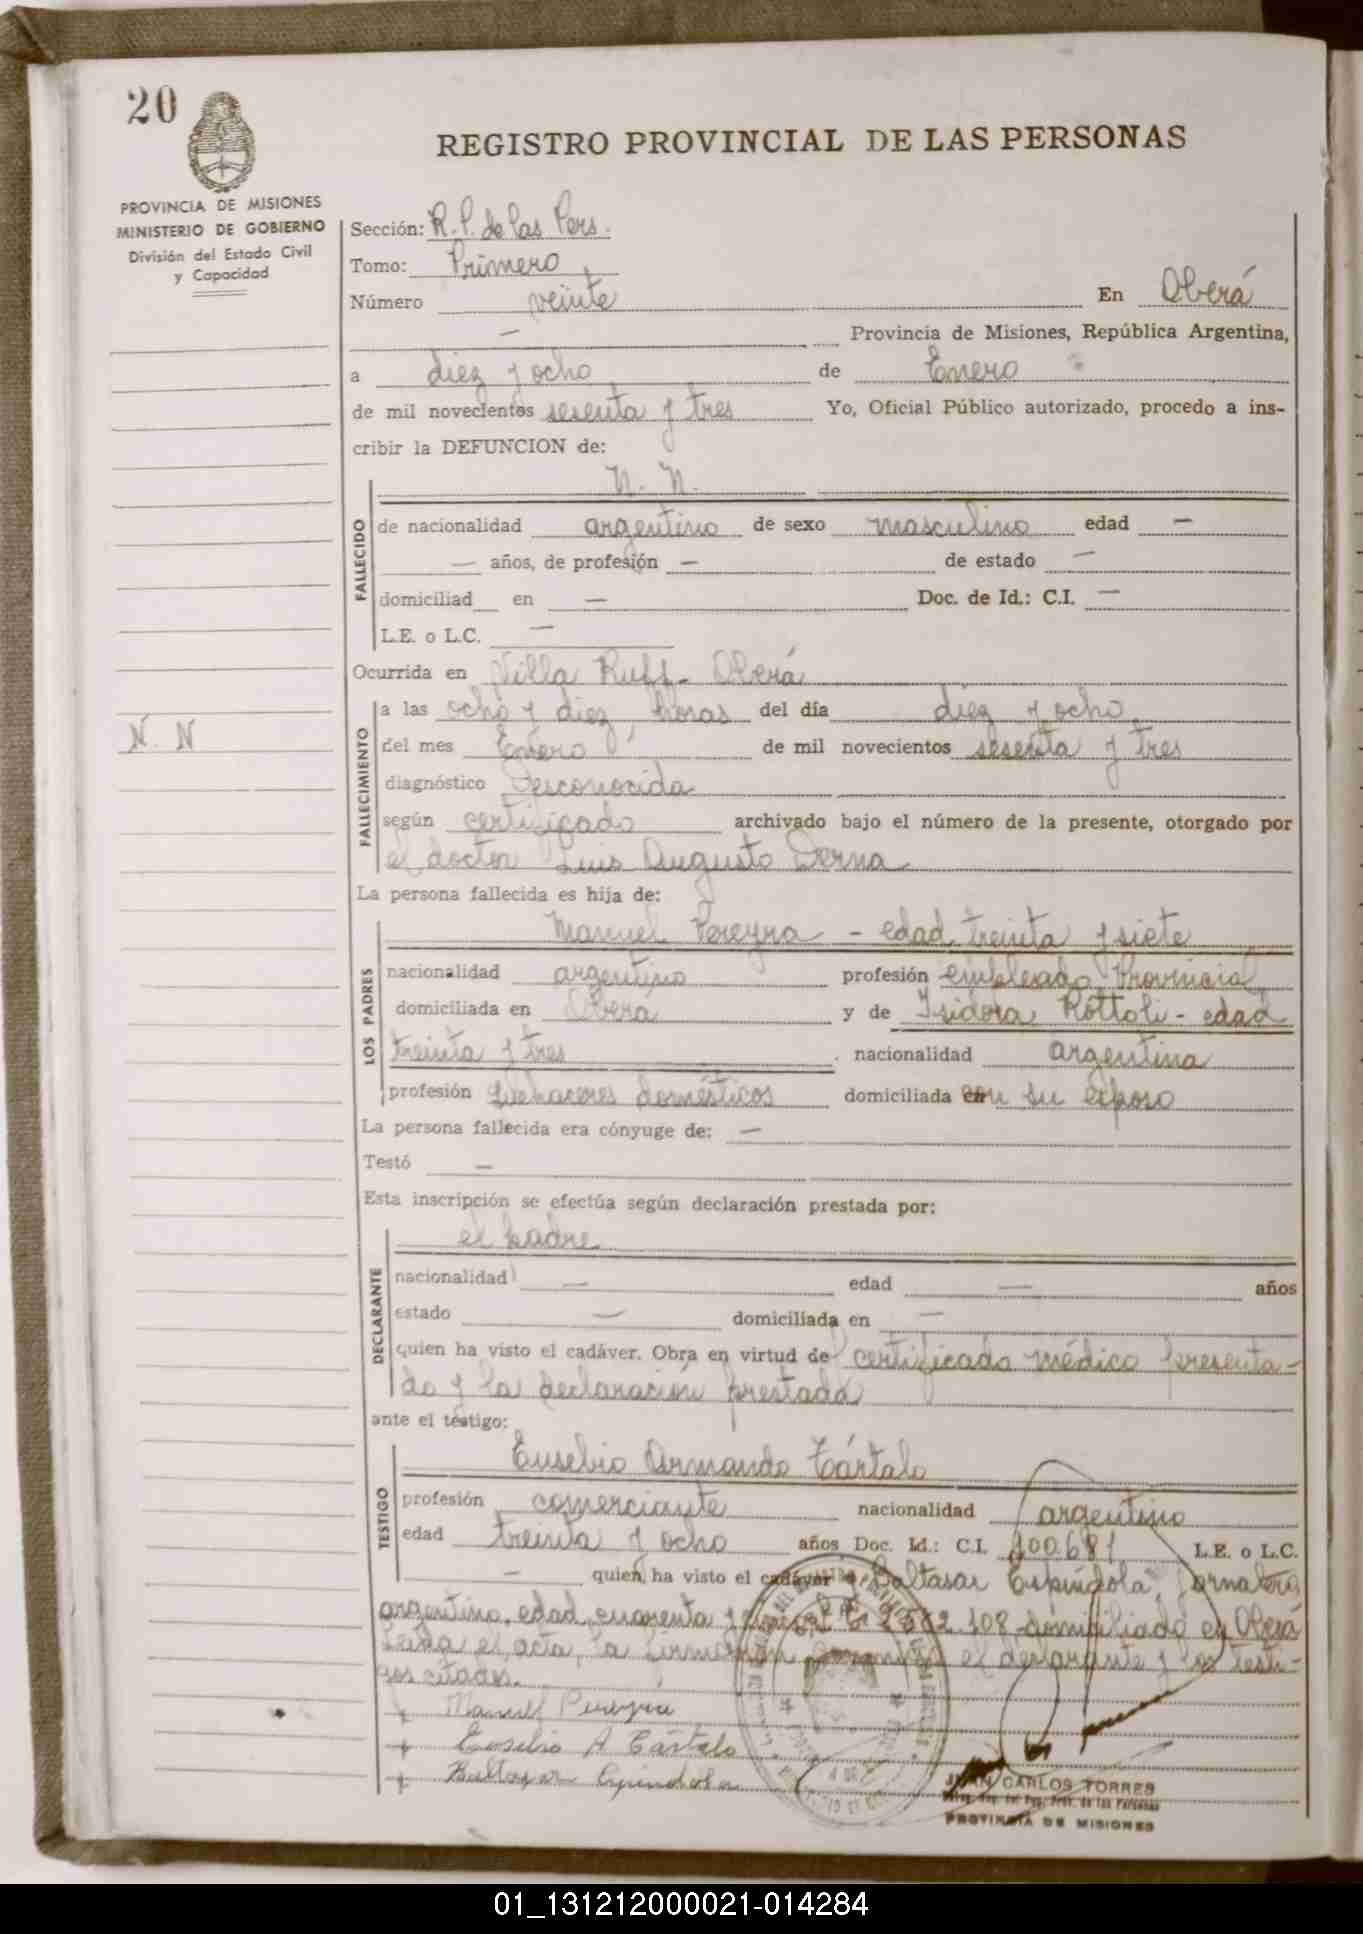 20
REGISTRO PROVINCIAL DE LAS PERSONAS
PROVINCIA DE MISIONES
MINISTERIO DE GOBIERNO
División del Estado Civil
y Capacidad
Sección: R.P. de las Pers.
Tomo: Primero
Número veinte En Oberá
— Provincia de Misiones, República Argentina,
a diez y ocho de Enero
de mil novecientos sesenta y tres Yo, Oficial Público autorizado, procedo a ins-
cribir la DEFUNCION de:
N. N.
FALLECIDO
de nacionalidad argentino de sexo masculino edad —
— años, de profesión — de estado —
domiciliad en — Doc. de Id.: C.I. —
L.E. o L.C. —
Ocurrida en Villa Ruff - Oberá
N. N
FALLECIMIENTO
a las ocho y diez horas del día diez y ocho
del mes Enero de mil novecientos sesenta y tres
diagnóstico Desconocida
según certificado archivado bajo el número de la presente, otorgado por
el doctor Luis Augusto Derna
La persona fallecida es hija de:
LOS PADRES
Manuel Pereyra - edad treinta y siete
nacionalidad argentino profesión empleado Provincial
domiciliada en Oberá y de Isidora Rottoli - edad
treinta y tres nacionalidad argentina
profesión quehaceres domésticos domiciliada con su esposo
La persona fallecida era cónyuge de: —
Testó —
Esta inscripción se efectúa según declaración prestada por:
DECLARANTE
el padre
nacionalidad — edad — años
estado — domiciliada en —
quien ha visto el cadáver. Obra en virtud de certificado médico presenta-
do y la declaración prestada
ante el testigo:
TESTIGO
Eusebio Armando Cártalo
profesión comerciante nacionalidad argentino
edad treinta y ocho años Doc. Id.: C.I. 100.681 L.E. o L.C.
— quien ha visto el cadáver y Baltasar Espíndola, jornalero
argentino, edad cuarenta y 2562.108 domiciliado en Oberá
Leída el acta, la firmaron conmigo el declarante y los testi-
gos citados.
Manuel Pereyra
Eusebio A Cártalo
Baltazar Espindola
JUAN CARLOS TORRES
PROVINCIA DE MISIONES
01_131212000021-014284